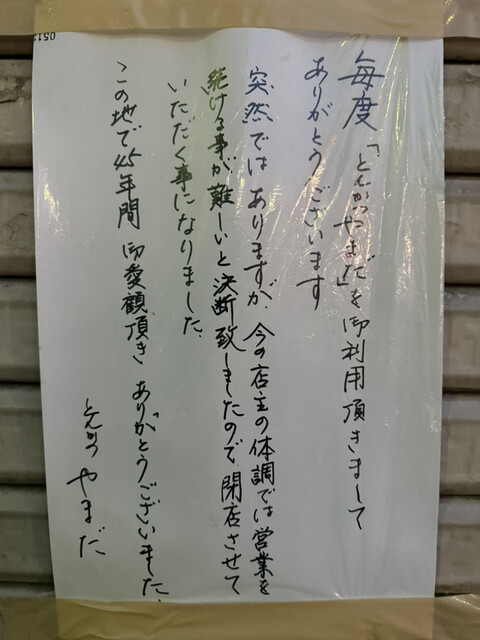 毎度「とんかつやまだ」を御利用頂きまして
ありがとうございます
突然ではありますが、今の店主の体調では営業を
続ける事が難しいと決断致しましたので閉店させて
いただく事になりました。
この地で45年間御愛顧頂きありがとうございました。
とんかつ やまだ